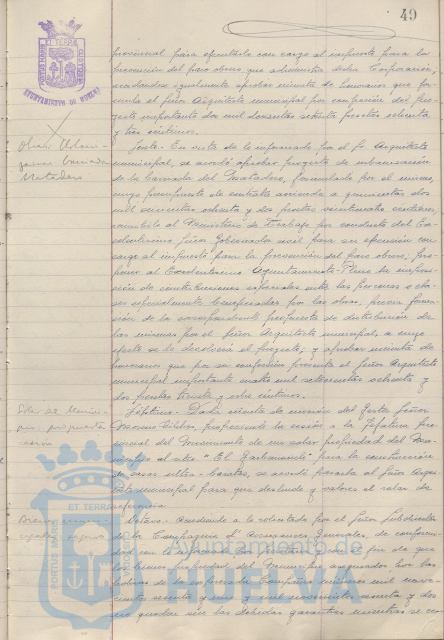 49
PORTUS MARIS ET TERRAE CUSTODIA
AYUNTAMIENTO DE HUELVA
provincial para efectuarlo con cargo al impuesto para la
prevención del paro obrero que administra dicha Corporación,
acordándose igualmente aprobar minuta de honorarios que for-
mula el Señor Arquitecto municipal por confección del pro-
yecto importante dos mil doscientas setenta pesetas setenta
y tres céntimos.
Obras Urbani-
zación Barriada
Matadero
Sexta.- En vista de lo informado por el Sr. Arquitecto
municipal, se acordó aprobar proyecto de urbanización
de la barriada del Matadero, formulado por el mismo,
cuyo presupuesto de contrata asciende a quinientas dos
mil ochenta y dos pesetas veinticuatro céntimos,
remitirlo al Ministerio de Trabajo por conducto del Ex-
celentísimo Señor Gobernador civil para su ejecución con
cargo al impuesto para la prevención del paro obrero, pro-
poner al Excelentísimo Ayuntamiento Pleno la imposi-
ción de contribuciones especiales entre las personas o cla-
ses especialmente beneficiadas por las obras, previa forma-
ción de la correspondiente propuesta de distribución de
las mismas por el Señor Arquitecto municipal, a cuyo
efecto se le devolverá el proyecto; y aprobar minuta de
honorarios que por su confección presenta el Señor Arquitecto
municipal importante cuatro mil setecientas ochenta y
dos pesetas treinta y ocho céntimos.
Séptima.- Dada cuenta de moción del Gestor Señor
Moreno proponiendo la cesión a la Jefatura pro-
vincial del Movimiento de un solar propiedad del Mu-
nicipio al sitio "El para la construcción
de casas ultra-baratas, se acordó pasarla al Señor Arqui-
tecto municipal para que deslinde y valore el solar de
referencia.
Octavo.- Accediendo a lo solicitado por el Señor Subdirector
de la Compañía de Generales, de conformi-
dad con lo informado a fin de que
los bienes propiedad del Municipio asegurados por las
de la expresada Compañía mil nove-
cientos sesenta y uno y mil novecientos sesenta y dos
no queden sin las debidas garantías mientras se
ET TERRAE
PORTUS MARIS
Ayuntamiento de
HUELVA